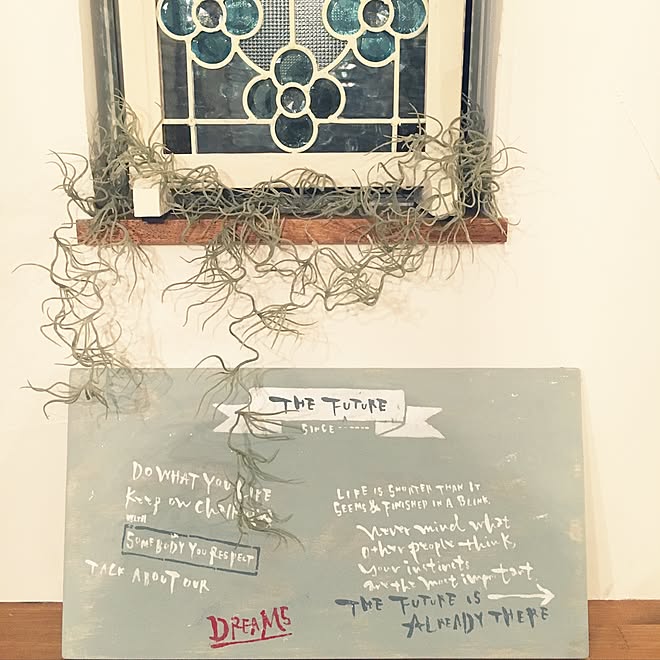 THE FUTURE
SINCE ------
DO WHAT YOU LIFE
Keep on
WITH
SOMEBODY YOU RESPECT
TALK ABOUT OUR
DREAMS
LIFE IS SHORTER THAN IT
SEEMS & FINISHED IN A BLINK.
Never mind what
other people think,
your instincts
are the most important
THE FUTURE IS
ALREADY THERE